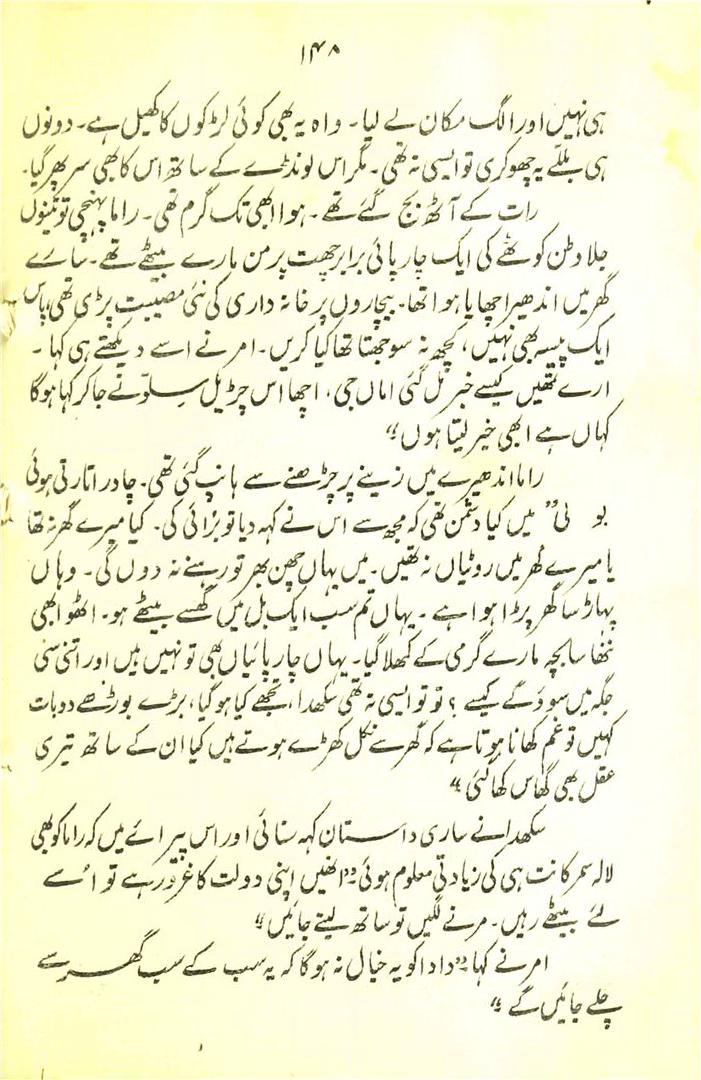 ۱۴۸
ہی نہیں اور الگ مکان لے لیا۔ واہ یہ بھی کوئی لڑکوں کا کھیل ہے۔ دونوں
ہی بللّے یہ چھوکری تو ایسی نہ تھی۔ مگر اس لونڈے کے ساتھ اس کا بھی سر پھر گیا۔
رات کے آٹھ بج گئے تھے۔ ہوا ابھی تک گرم تھی۔ راما پہنچی تو تینوں
جلا وطن کوٹھے کی ایک چارپائی برابر چھت پر من مارے بیٹھے تھے۔ سارے
گھر میں اندھیرا چھایا ہوا تھا۔ بیچاروں پر خانہ داری کی نئی مصیبت پڑی تھی، پاس
ایک پیسہ بھی نہیں، کچھ نہ سوجھتا تھا کیا کریں۔ امر نے اسے دیکھتے ہی کہا۔
ارے تمھیں کیسے خبر مل گئی اماں جی، اچھا اس چڑیل سِلّو نے جا کر کہا ہوگا
کہاں ہے ابھی خبر لیتا ہوں“
راما اندھیرے میں زینے پر چڑھنے سے ہانپ گئی تھی۔ چادر اتارتی ہوئی
بولی ”میں کیا دشمن تھی کہ مجھ سے اس نے کہہ دیا تو برائی کی۔ کیا میرے گھر نہ تھا
یا میرے گھر میں روٹیاں نہ تھیں۔ میں یہاں چھن بھر تو رہنے نہ دوں گی۔ وہاں
پہاڑ سا گھر پڑا ہوا ہے۔ یہاں تم سب ایک بل میں گھسے بیٹھے ہو۔ اٹھو ابھی
ننھا سا بچہ مارے گرمی کے کمھلا گیا۔ یہاں چارپائیاں بھی تو نہیں ہیں اور اتنی سی
جگہ میں سوؤگے کیسے؟ تو تو ایسی نہ تھی سکھدا، تجھے کیا ہو گیا، بڑے بوڑھے دو بات
کہیں تو غم کھانا ہوتا ہے کہ گھر سے نکل کھڑے ہوتے ہیں کیا ان کے ساتھ تیری
عقل بھی گھاس کھا گئی“
سکھدا نے ساری داستان کہہ سنائی اور اس پیرائے میں کہ راما کو بھی
لالہ سمر کانت ہی کی زیادتی معلوم ہوئی ”انھیں اپنی دولت کا غرور ہے تو اُسے
لئے بیٹھے رہیں۔ مرنے لگیں تو ساتھ لیتے جائیں“
امر نے کہا ”دادا کو یہ خیال نہ ہوگا کہ یہ سب کے سب گھر سے
چلے جائیں گے“